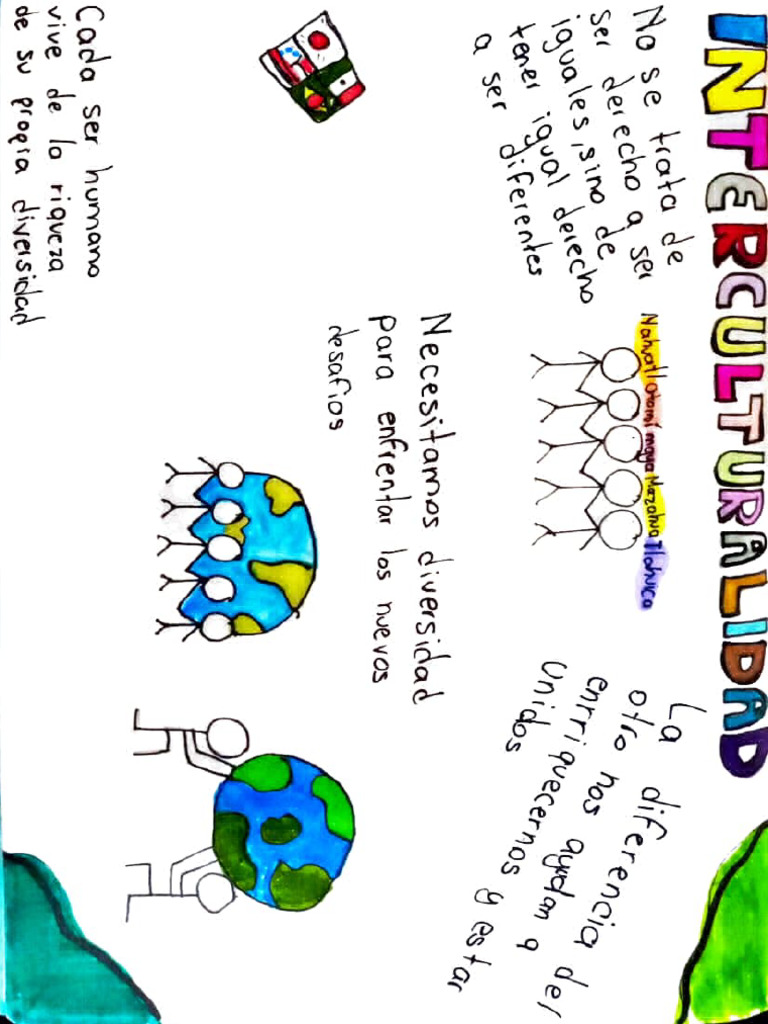 INTERCULTURALIDAD
No se trata de
ser derecho a ser
iguales, sino de
tener igual derecho
a ser diferentes
Nahuatl Otomi maya Mazahua Tlahuica
La diferencia del
otro nos ayudan a
enrriquecernos y estar
Unidos
Necesitamos diversidad
para enfrentar los nuevos
desafios
Cada ser humano
vive de la riqueza
de su propia diversidad